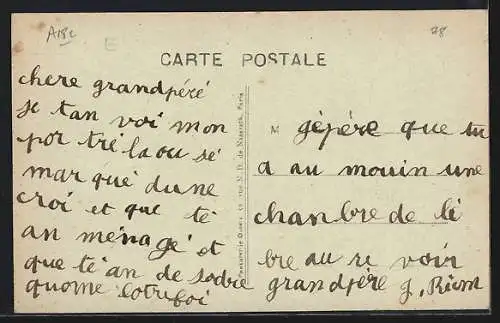 A18c
78
CARTE POSTALE
chere grandpéré
je tan voi mon
por tré la ou sé
mar qué dune
croi et que té
an ménagé et
que té an de sodre
quome lotre foi
M
gépére que tu
a au mouin une
chanbre de li
bre au re voir
grandpére g, Riom